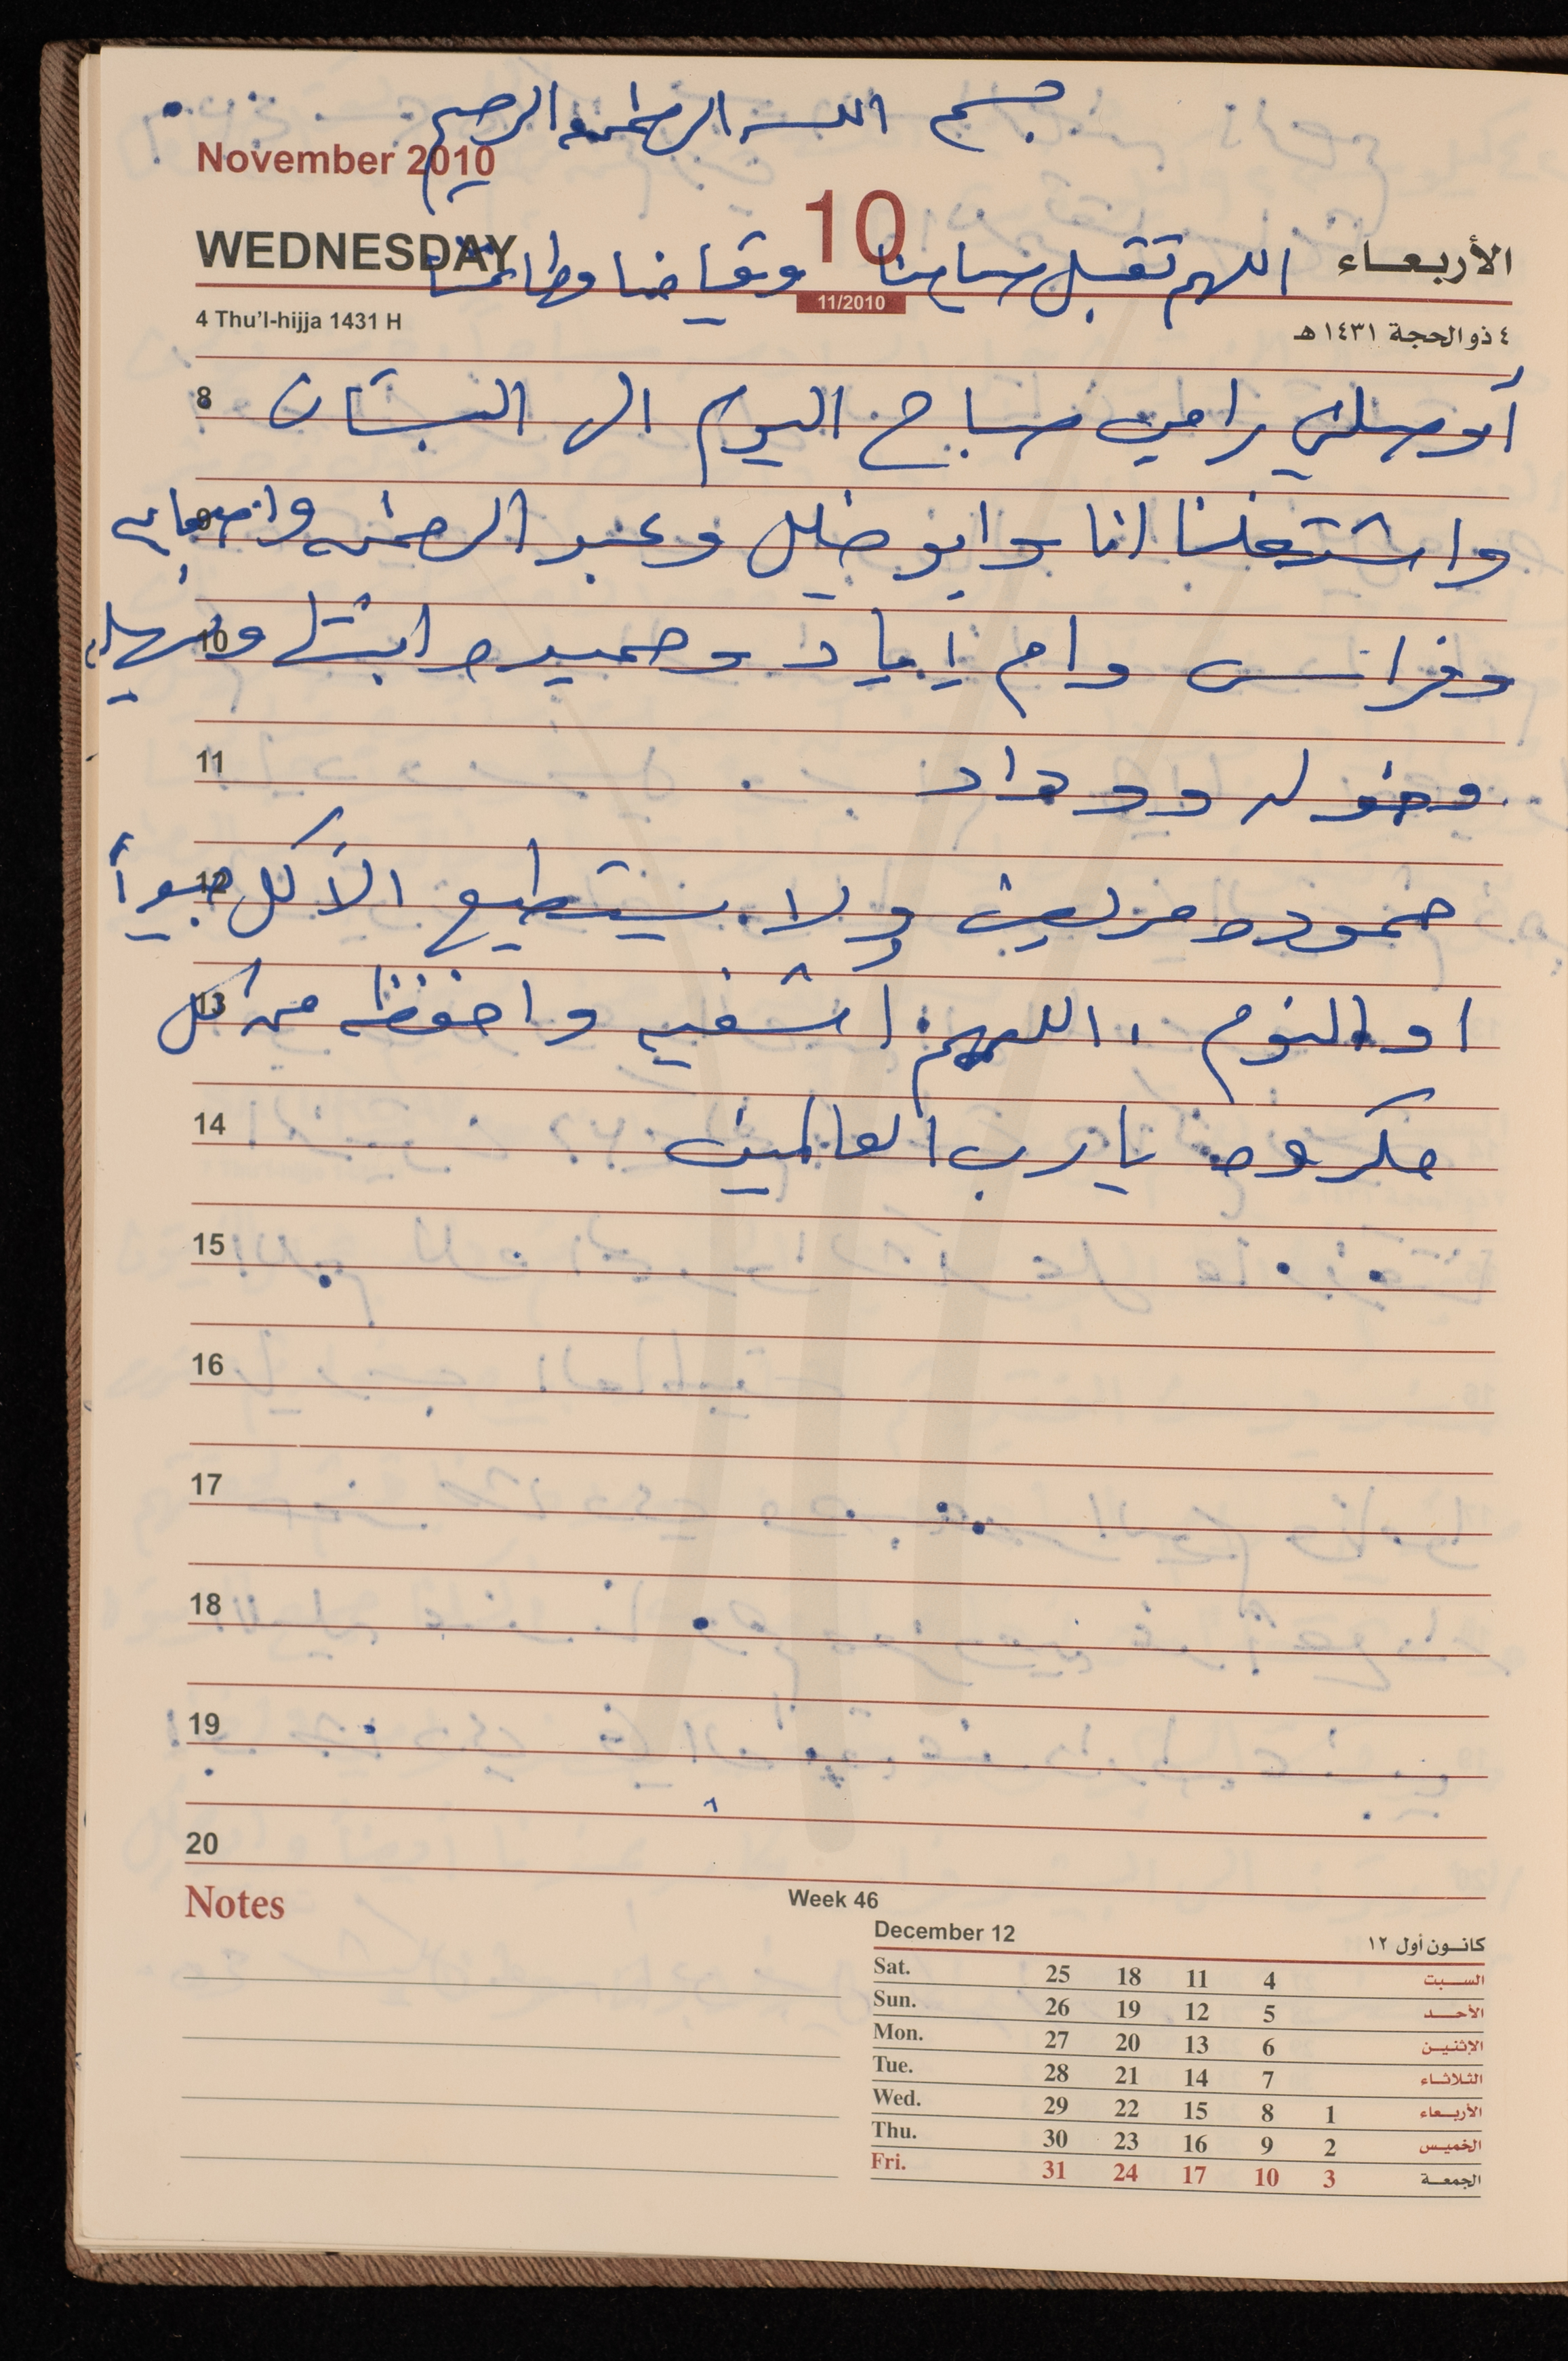 بسم الله الرحمن الرحيم
November 2010
WEDNESDAY 10 الأربعاء
اللهم تقبل صيامنا وقيامنا وطاعتنا
11/2010
4 Thu'l-hijja 1431 H ٤ ذو الحجة ١٤٣١ هـ
8 أوصلني رامي صباح اليوم الى البستان
9 واشتغلنا انا وابو خليل وعبد الرحمن
10 وفراس وام اياد وحميده ابنتها
11 وخوله ووداد
12 حموده مريض ولا يستطيع الأكل جيداً
13 او النوم، اللهم اشفيه واحفظه من كل
14 مكروه يا رب العالمين
15
16
17
18
19
20
Notes
Week 46
December 12 كانون أول ١٢
Sat. 25 18 11 4 السبت
Sun. 26 19 12 5 الأحد
Mon. 27 20 13 6 الاثنين
Tue. 28 21 14 7 الثلاثاء
Wed. 29 22 15 8 1 الأربعاء
Thu. 30 23 16 9 2 الخميس
Fri. 31 24 17 10 3 الجمعة